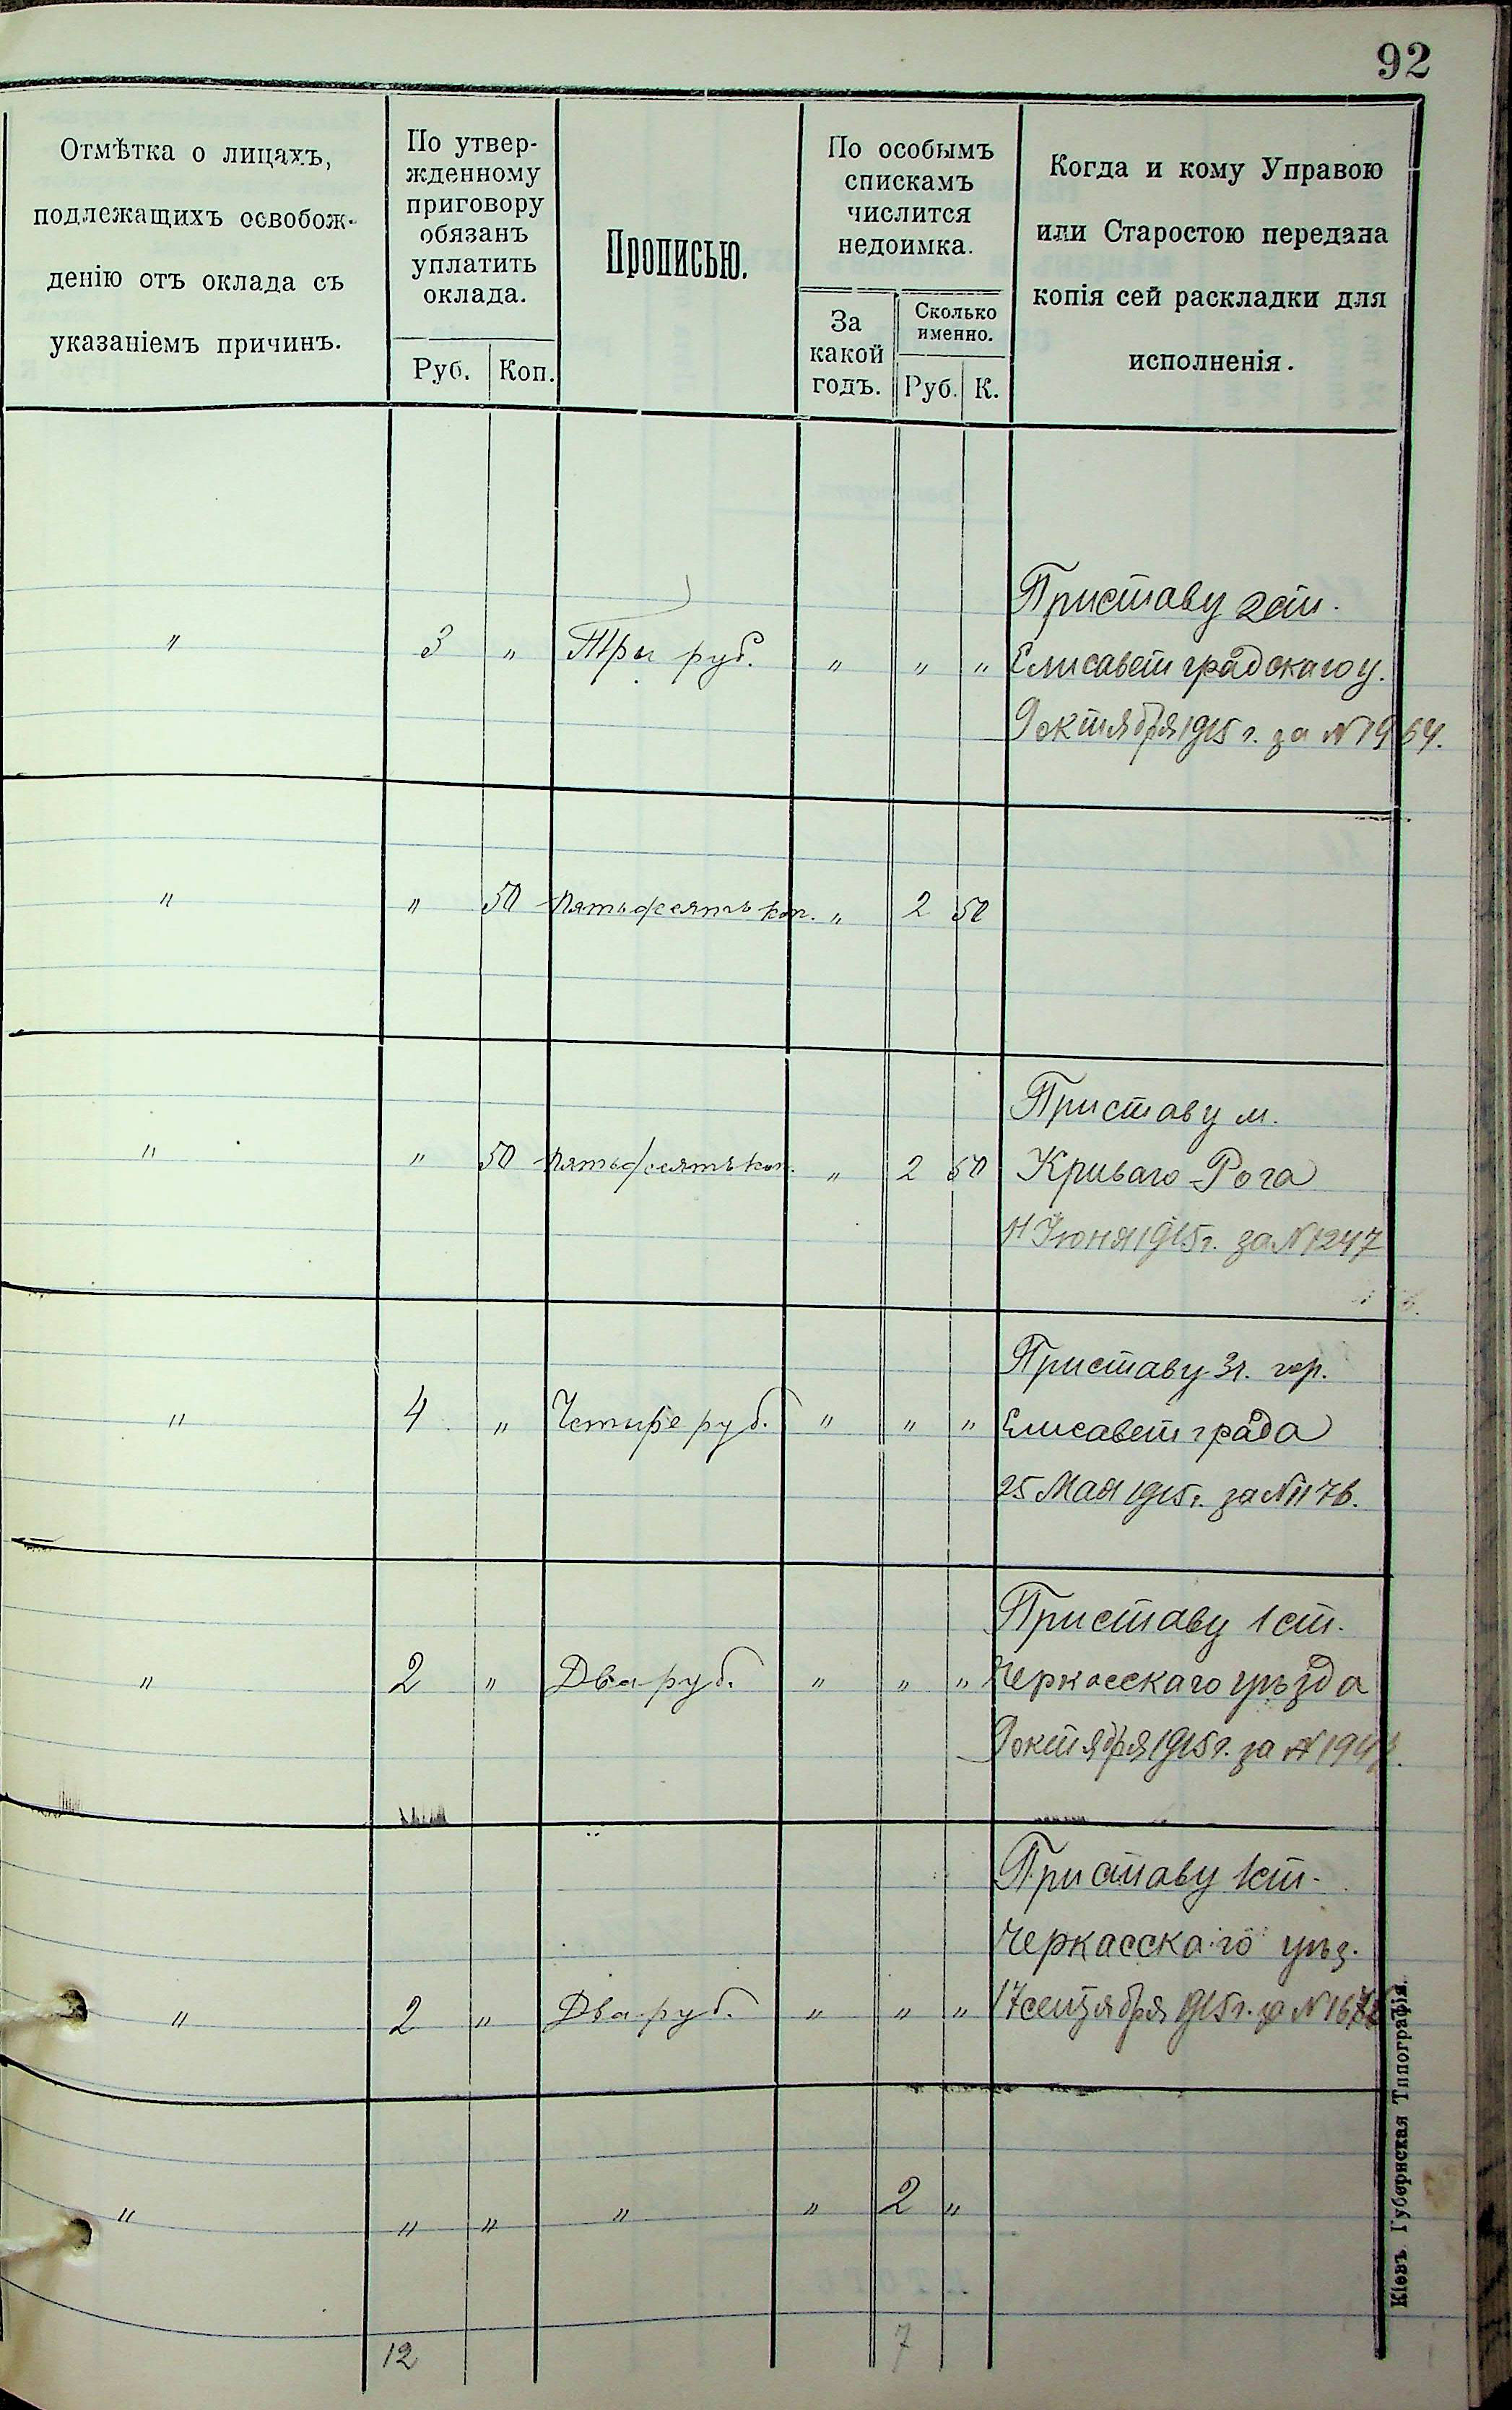 92
Отмѣтка о лицахъ,
подлежащихъ освобож-
денію отъ оклада съ
указаніемъ причинъ.
По утвер-
жденному
приговору
обязанъ
уплатить
оклада.
Руб. Коп.
Прописью.
По особымъ
спискамъ
числится
недоимка.
За
какой
годъ.
Сколько
именно.
Руб. К.
Когда и кому Управою
или Старостою передана
копія сей раскладки для
исполненія.
Приставу 2 ст.
" 3 " Три руб. " " " Елисаветградскаго у.
9 октября 1915 г. за № 1964.
" " 50 пятьдесятъ коп. " 2 50
Приставу м.
" " 50 пятьдесятъ коп. " 2 50 Криваго-Рога
11 Июня 1915 г. за № 1247
Приставу 3 ч. гор.
" 4 " Четыре руб. " " " Елисаветграда
25 Мая 1915 г. за № 1176.
Приставу 1 ст.
" 2 " Два руб. " " " Черкасскаго уѣзда
9 октября 1915 г. за №
Приставу 1 ст.
Черкасскаго уѣз.
" 2 " Два руб. " " " 17 сентября 1915 г. за №
" " " " " 2 "
12 7
Кіевъ. Губернская Типографія.